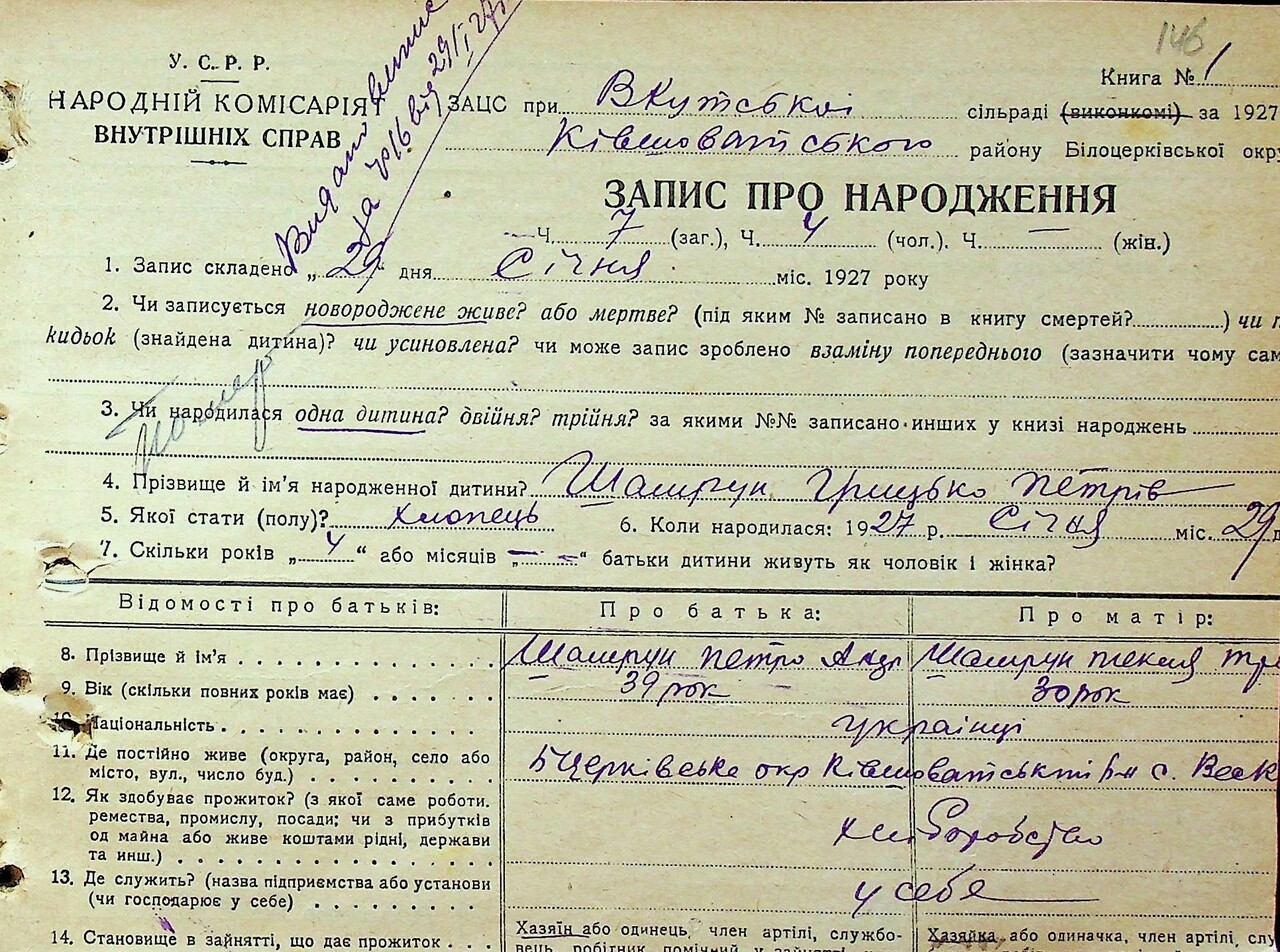 146
У. С. Р. Р.
НАРОДНІЙ КОМІСАРІЯ
ВНУТРІШНІХ СПРАВ
Видано виписе
за № 16 від 29/I 27
Книга № 1
ЗАЦС при Вкутської сільраді (виконкомі) за 1927
Ківшоватського району Білоцерківської окру
ЗАПИС ПРО НАРОДЖЕННЯ
Ч. 7 (заг.), Ч. 4 (чол.). Ч. — (жін.)
1. Запис складено „ 29 “ дня Січня міс. 1927 року
2. Чи записується новороджене живе? або мертве? (під яким № записано в книгу смертей? ) чи п
кидьок (знайдена дитина)? чи усиновлена? чи може запис зроблено взаміну попереднього (зазначити чому сам
помер
3. Чи народилася одна дитина? двійня? трійня? за якими №№ записано инших у книзі народжень
4. Прізвище й ім’я народженної дитини? Шамрун Грицько Петрів
5. Якої стати (полу)? хлопець 6. Коли народилася: 1927 р. Січня міс. 29 д
7. Скільки років „ 4 “ або місяців „ — “ батьки дитини живуть як чоловік і жінка?
Відомості про батьків: Про батька: Про матір:
8. Прізвище й ім’я Шамрун Петро Андр Шамрун Текля
9. Вік (скільки повних років має) 39 рок 30 рок
10. Національність українці
11. Де постійно живе (округа, район, село або
місто, вул., число буд.) БЦерківське окр Ківшоватський р-н с.
12. Як здобуває прожиток? (з якої саме роботи.
ремества, промислу, посади; чи з прибутків
од майна або живе коштами рідні, держави
та инш.) хліборобство
13. Де служить? (назва підприємства або установи
(чи господарює у себе) у себе
14. Становище в зайнятті, що дає прожиток
Хазяїн або одинець, член артілі, службо-
вець, робітник, помічний у зайнятті
Хазяйка або одиначка, член артілі, слу